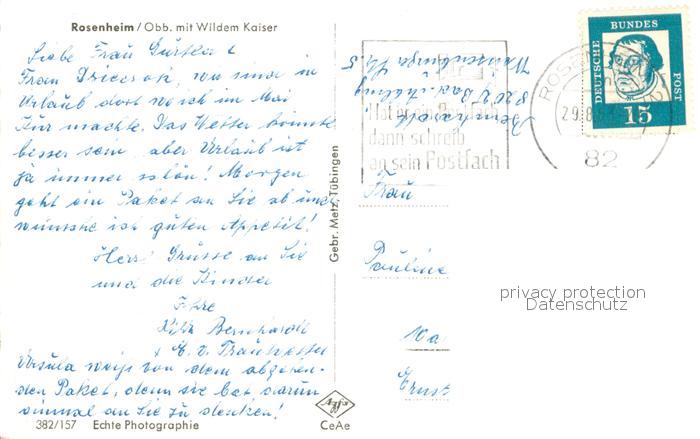 Rosenheim / Obb. mit Wildem Kaiser
Liebe Frau Gürtler &
Frau wir sind in
Urlaub dort wo ich im Mai
Kur machte. Das Wetter könnte
besser sein aber Urlaub ist
ja immer schön! Morgen
geht ein Paket an Sie ab und
wünsche ich guten Appetit!
Herzl Grüsse an Sie
und die Kinder
Ihre
Bernhardt
Ursula weiß von dem abgehen-
den Paket, denn sie bat darum
einmal an Sie zu denken!
382/157 Echte Photographie
Gebr. Metz, Tübingen
Agfa
CeAe
Bernhardt
8202 Bad Aibling
5
Hat er ein
dann schreib
an sein Postfach
ROSE
29.8.
82
DEUTSCHE BUNDES POST
15
Frau
Pauline
Wa
Ernst
privacy protection
Datenschutz